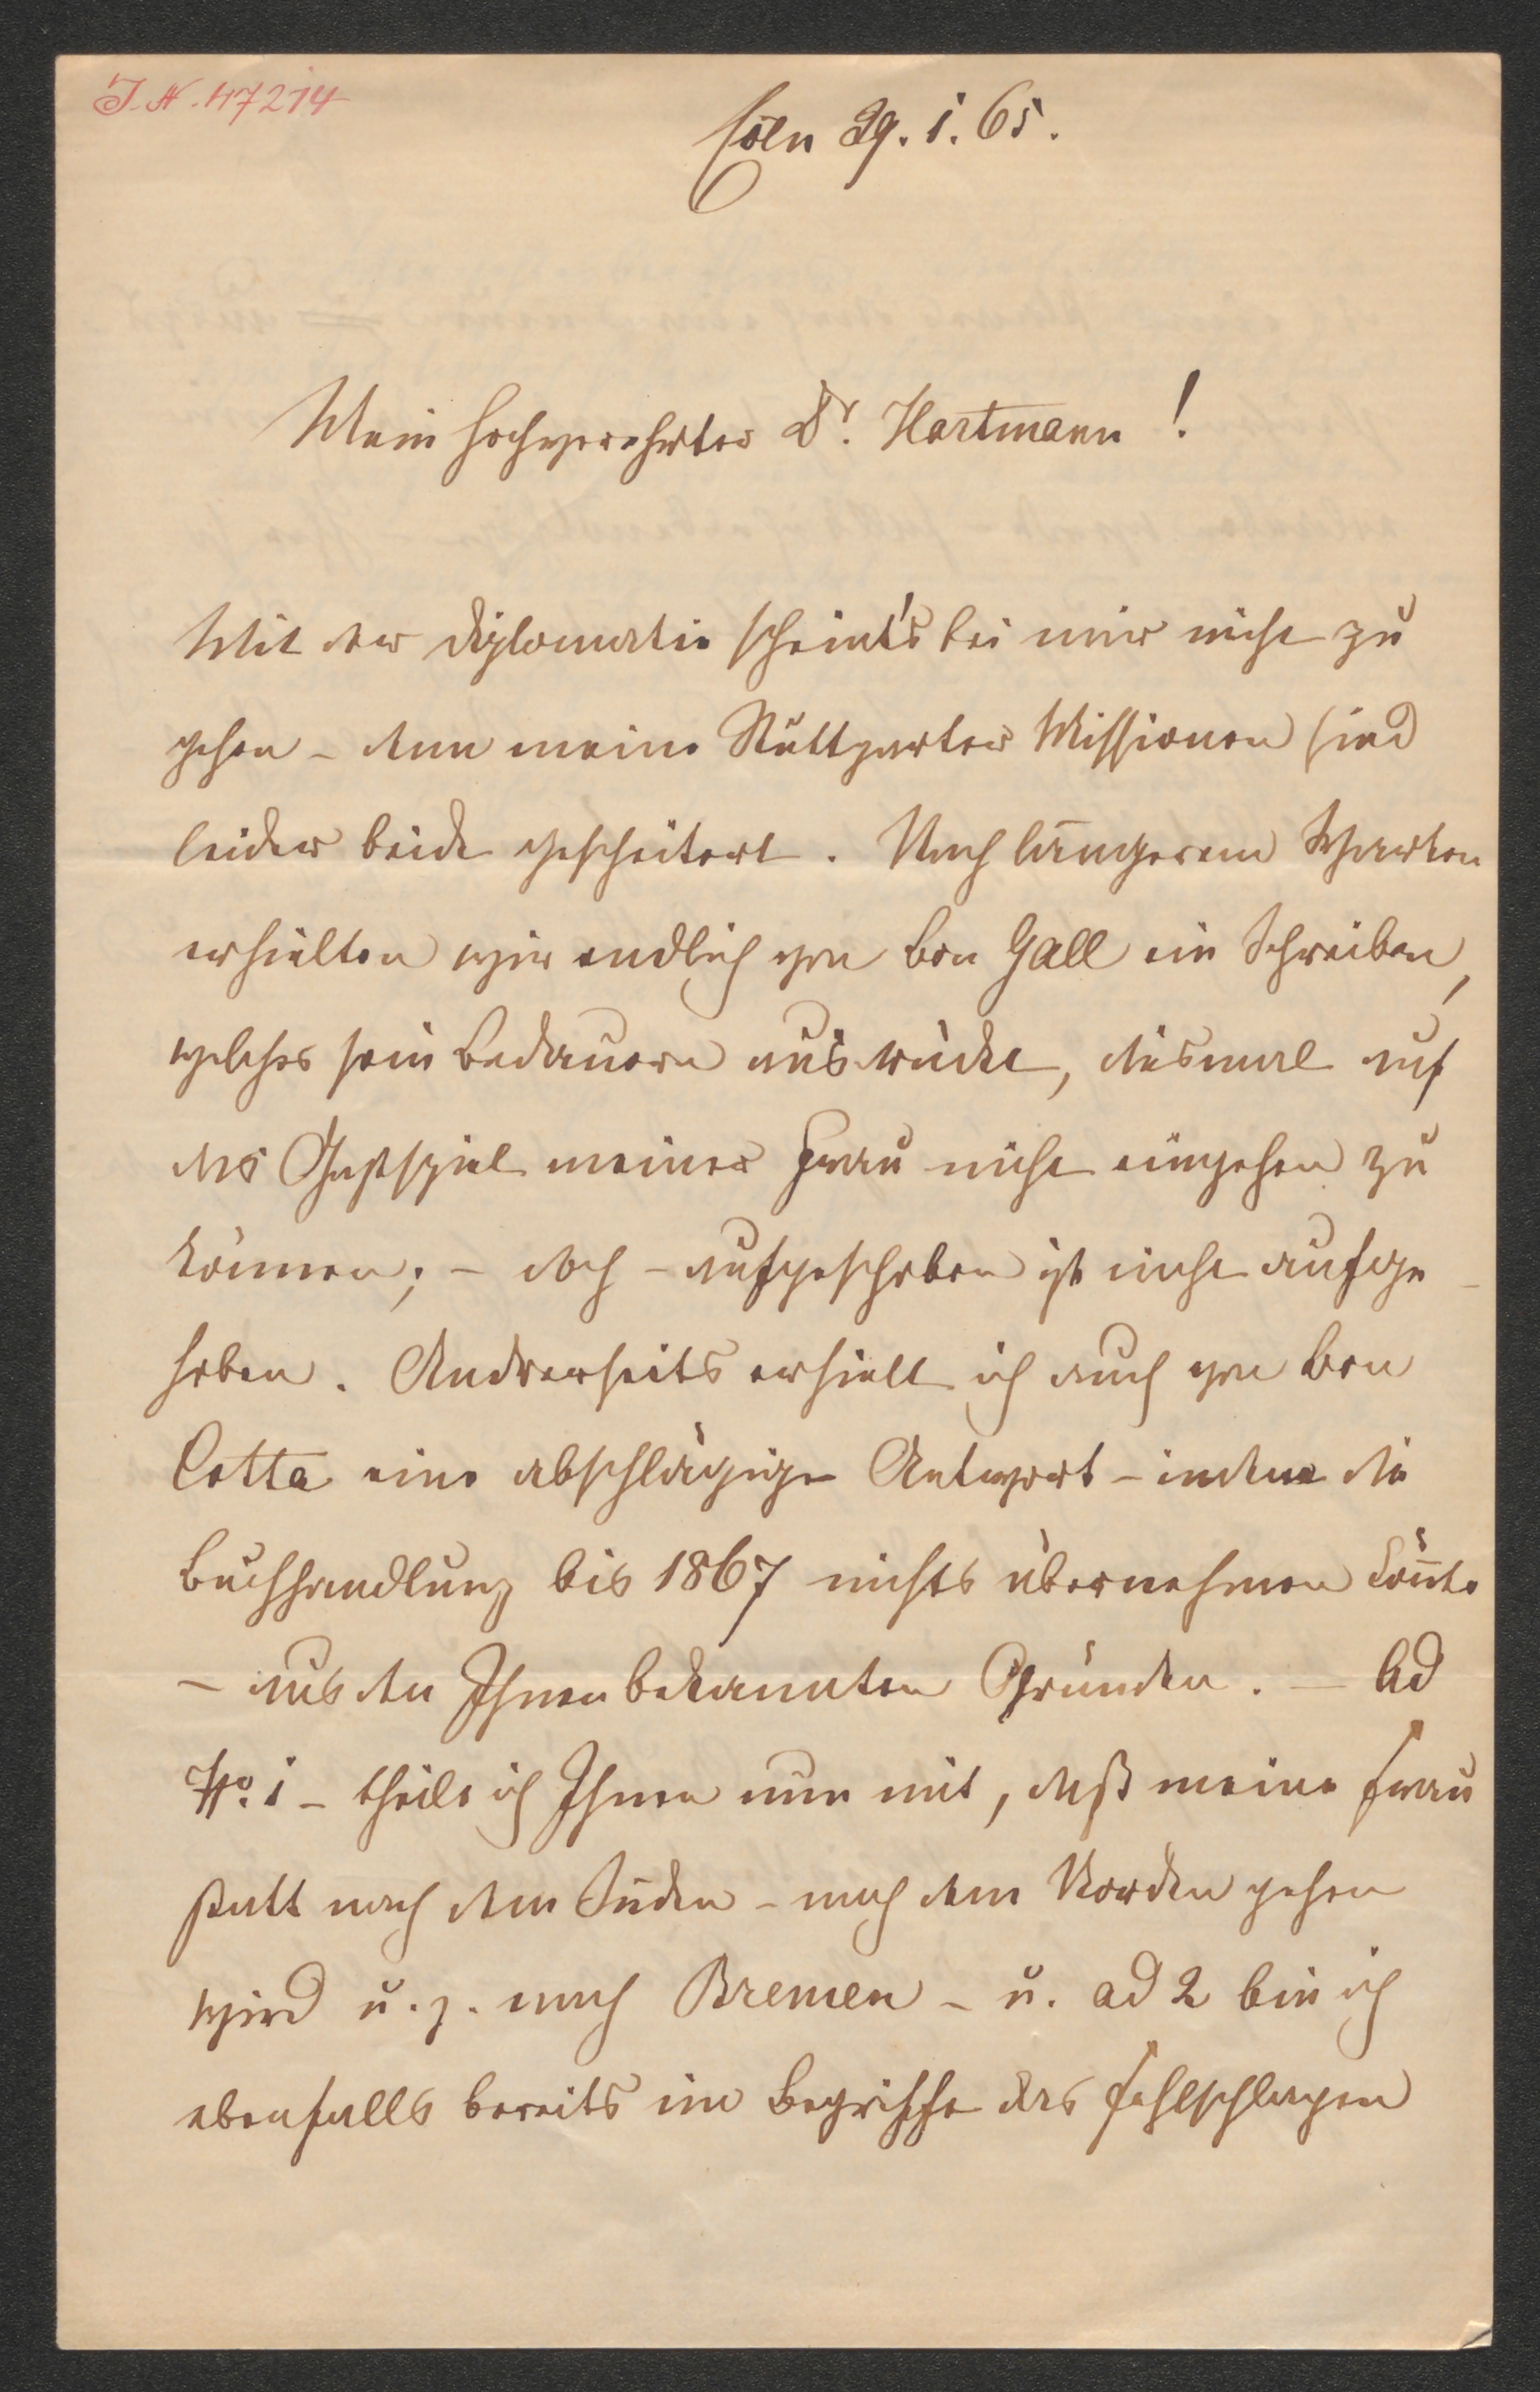 J. N. 47214
Cöln 29. 1. 65.
Mein hochverehrter Dr. Hartmann!
Mit der Diplomatie scheint's bei mir nicht zu
gehen – denn meine Stuttgarter Missionen sind
leider beide gescheitert. Nach längerem Warten
erhielten wir endlich von Bon Gall ein Schreiben,
welches sein Bedauern ausdrückt, diesmal auf
das Gastspiel meiner Frau nicht eingehen zu
können; – doch – aufgeschoben ist nicht aufge-
hoben. Andrerseits erhielt ich auch von Bon
Cotta eine abschlägige Antwort – indem die
Buchhandlung bis 1867 nichts übernehmen könnte
– aus den Ihnen bekannten Gründen. – Ad
No. 1 – theile ich Ihnen nun mit, daß meine Frau
statt nach dem Süden – nach dem Norden gehen
wird u. z. nach Bremen – u. ad 2 bin ich
ebenfalls bereits im Begriffe das Fehlschlagen